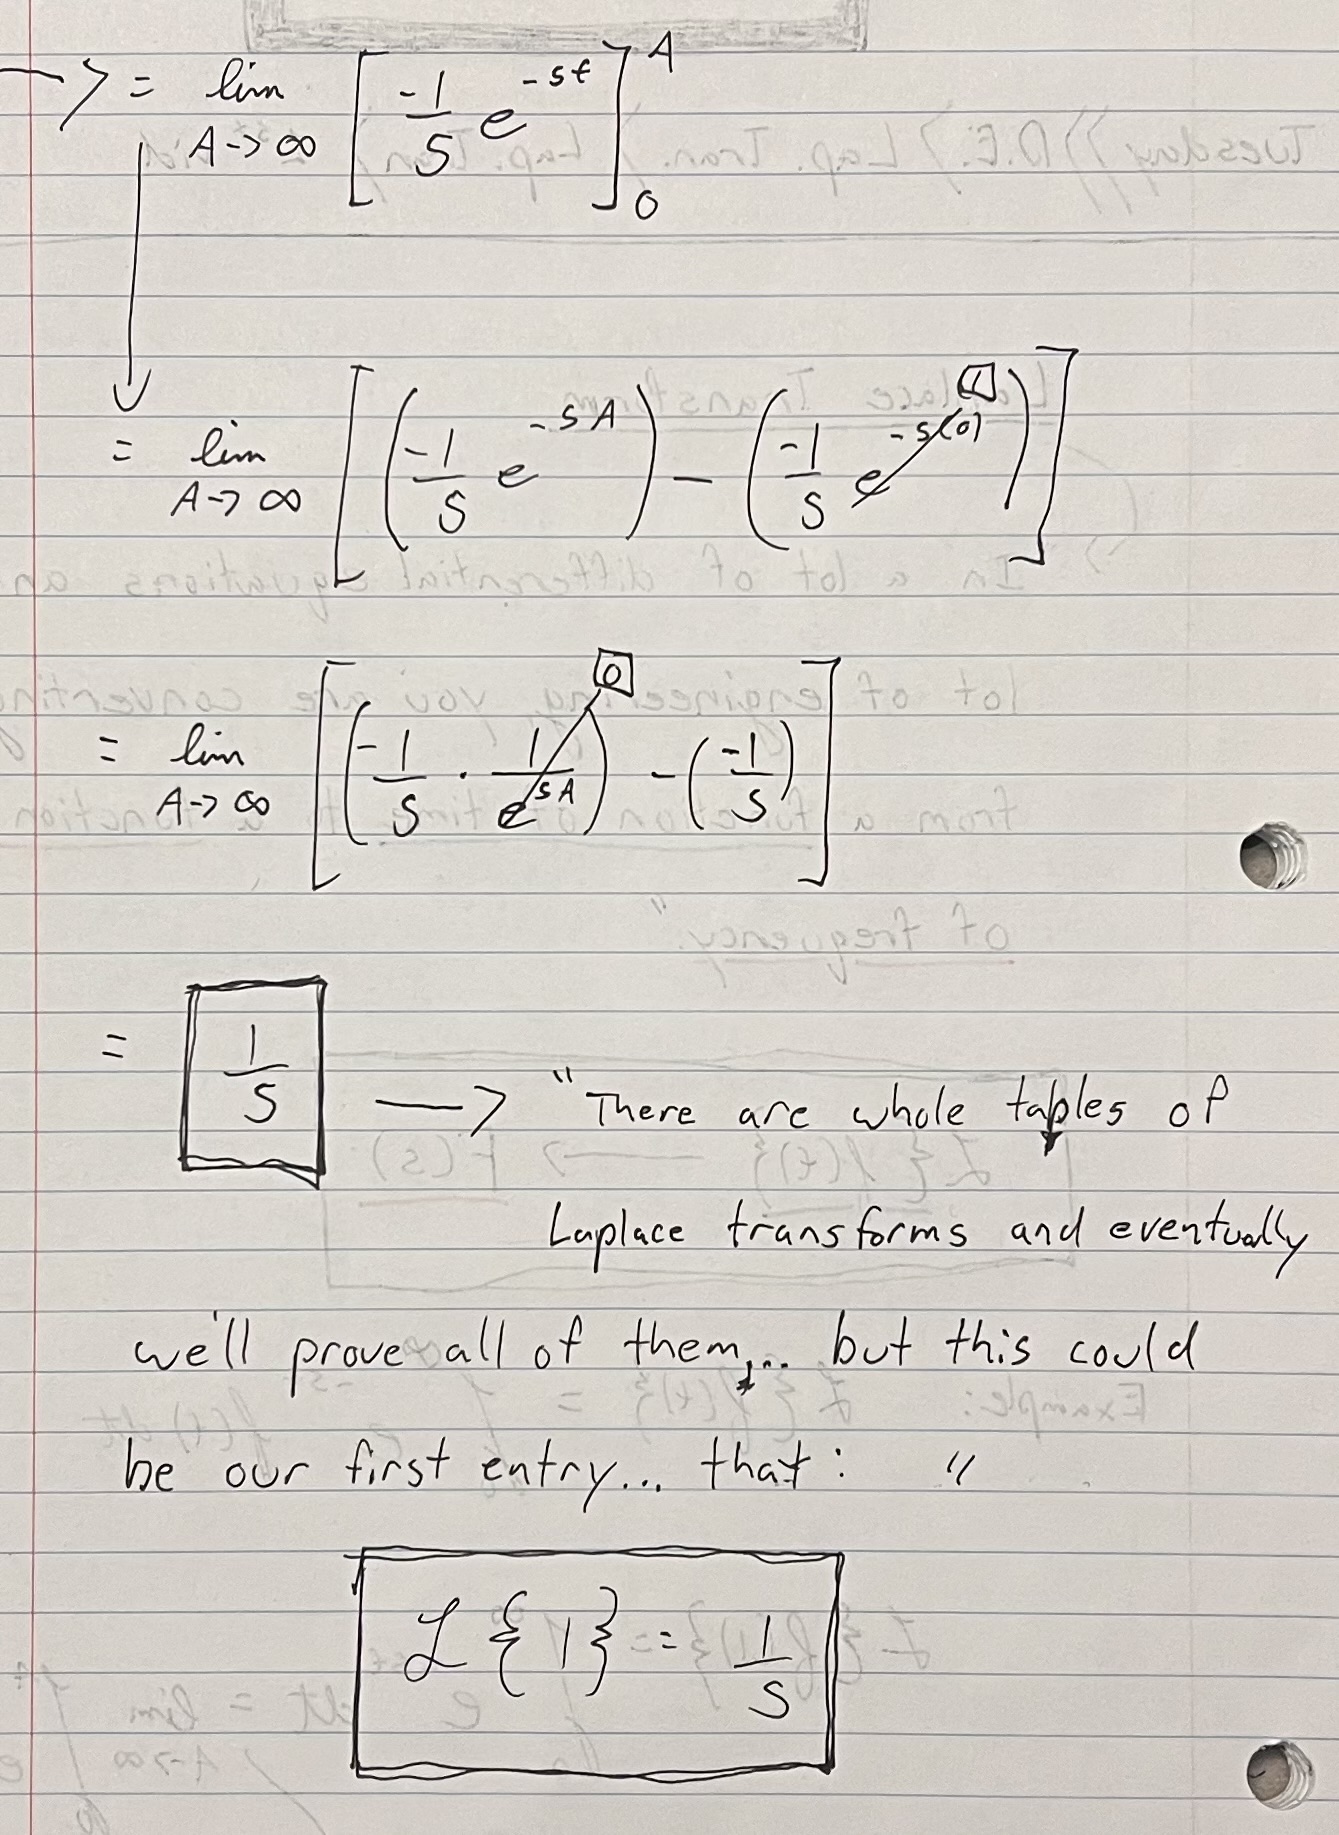 --> = lim A->∞ [-1/s e^-st]_0^A
= lim A->∞ [(-1/s e^-sA) - (-1/s e^-s(0) 1)]
= lim A->∞ [(-1/s · 1/e^sA 0) - (-1/s)]
= 1/s --> "There are whole tables of
Laplace transforms and eventually
we'll prove all of them,... but this could
be our first entry... that: "
ℒ{1} = 1/s